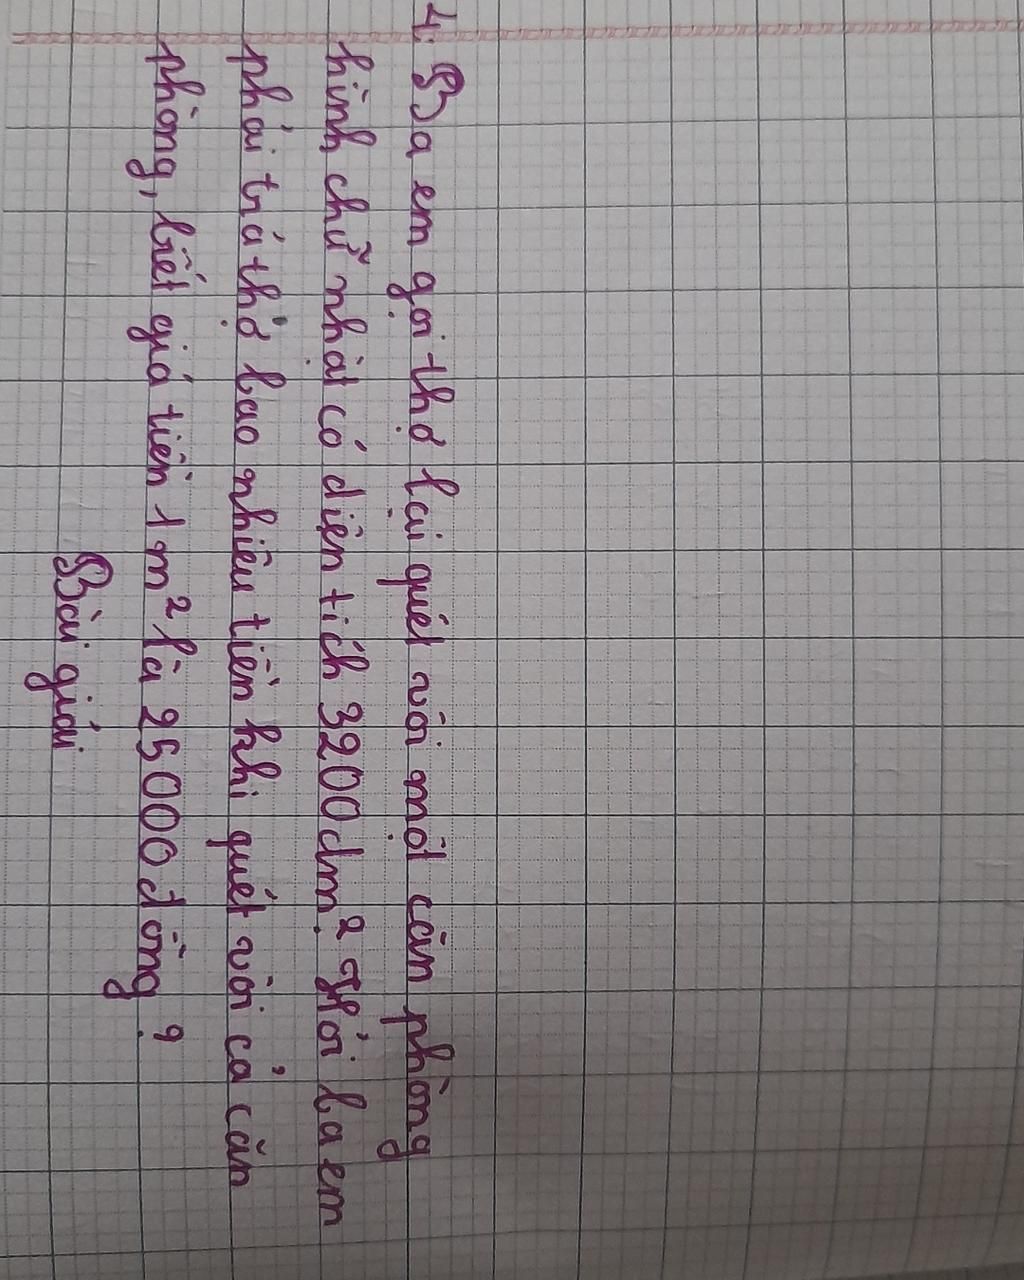 4. Ba em gọi thợ lại quét vôi một căn phòng
hình chữ nhật có diện tích 3200dm². Hỏi ba em
phải trả thợ bao nhiêu tiền khi quét vôi cả căn
phòng, biết giá tiền 1m² là 25000 đồng?
Bài giải